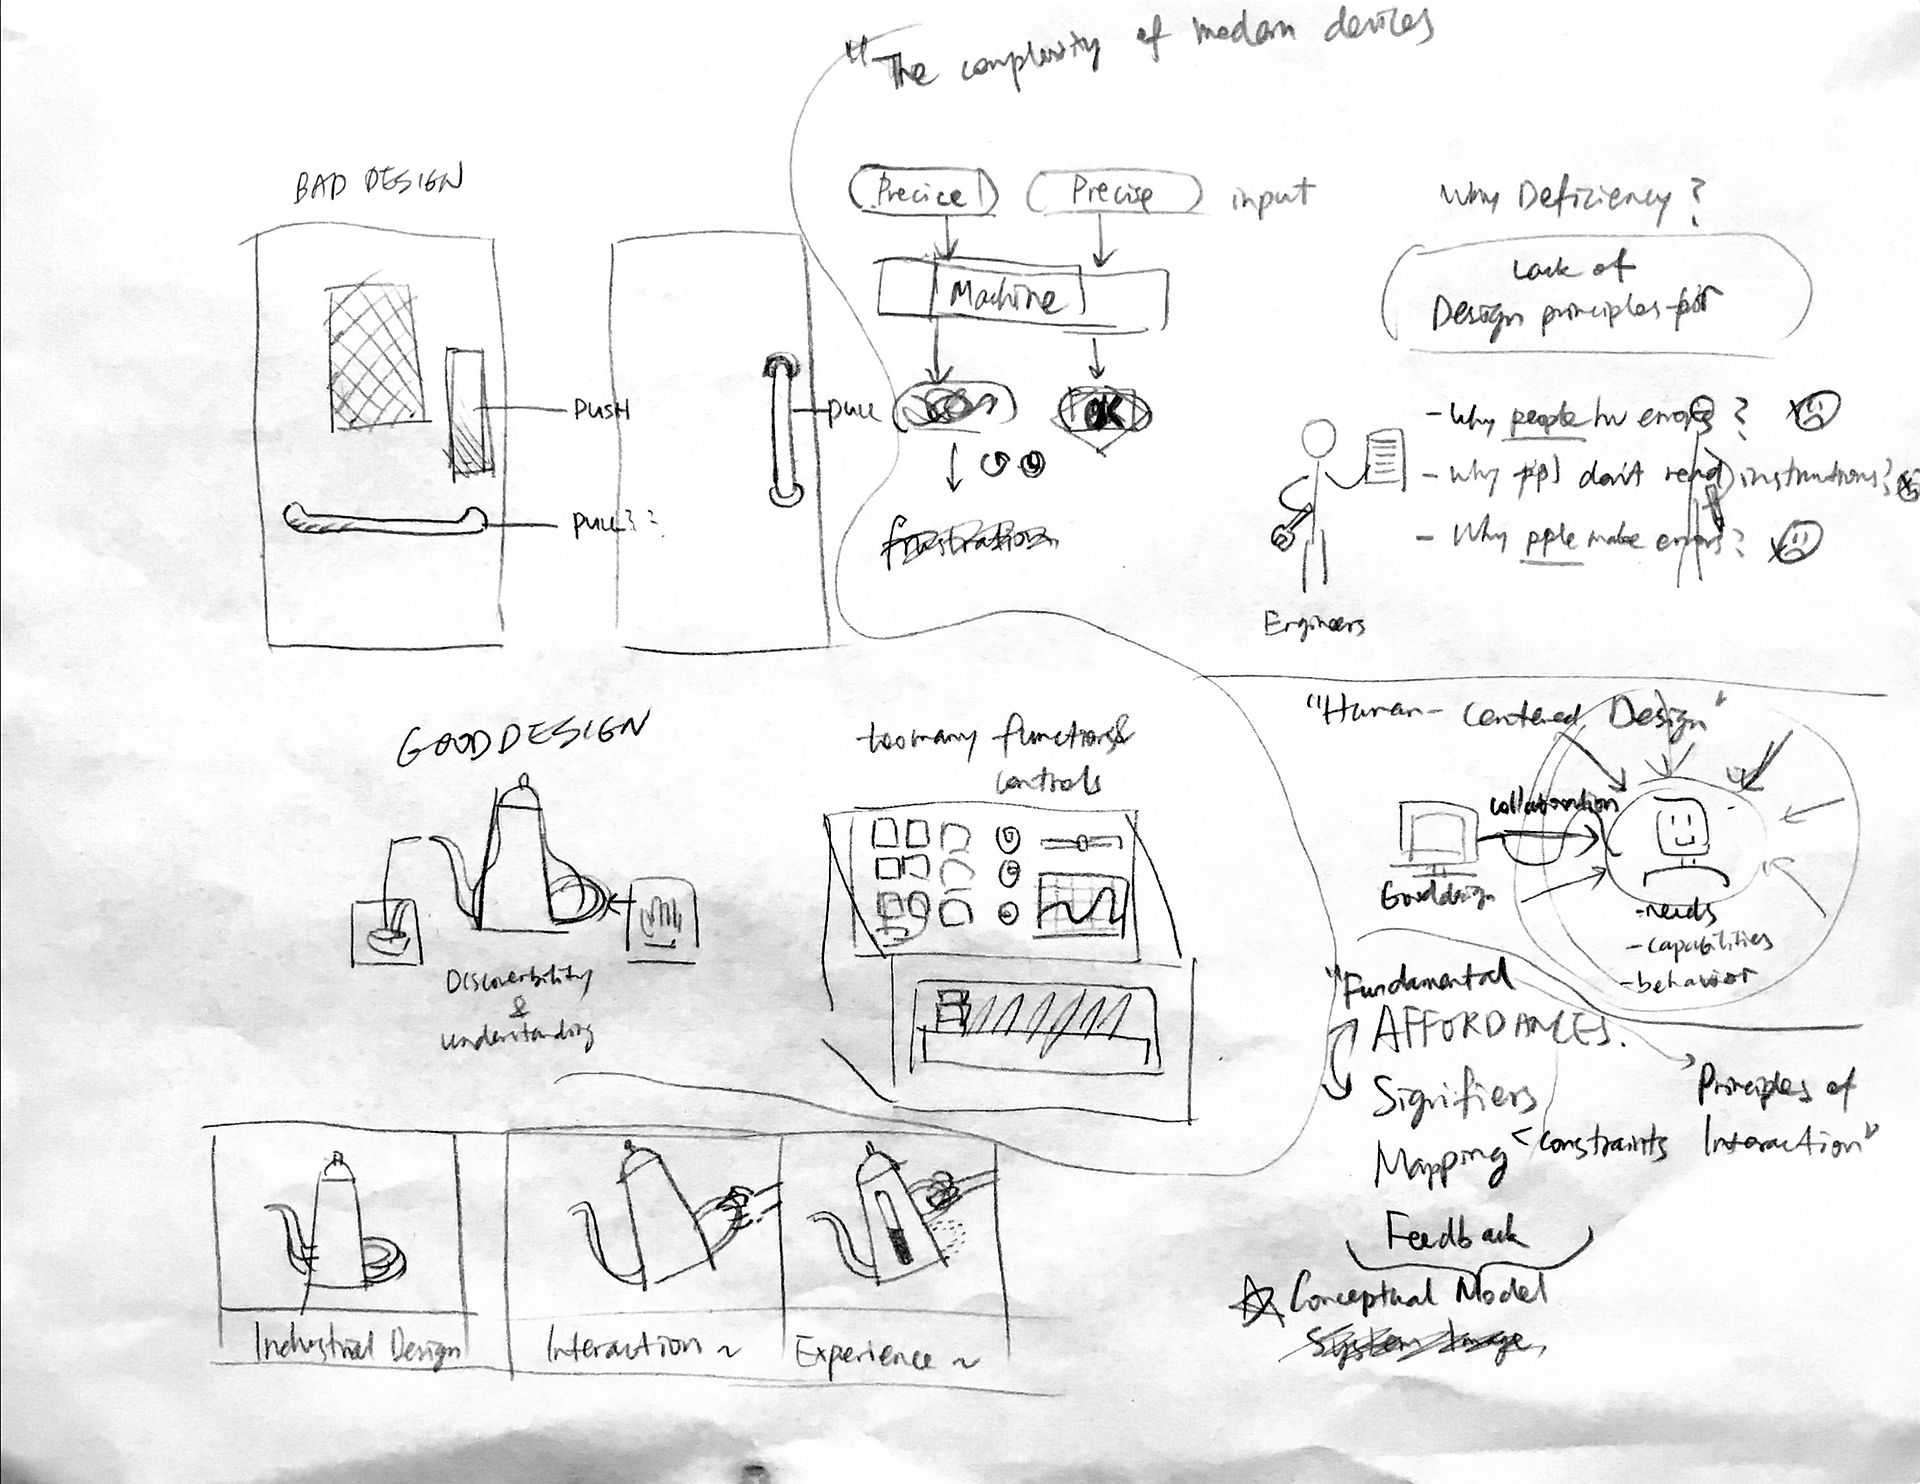 "The complexity of modern devices
BAD DESIGN
PUSH
PULL??
PULL
Precice
Precise
input
Machine
OK
frustration
Why Deficiency?
Lack of
Design principles for
- Why people errors?
- Why ppl don't read instructions?
- Why pple make errors?
Engineers
GOOD DESIGN
Discoverbility
&
understanding
too many functions &
controls
"Human-Centered Design"
collaboration
Good design
- needs
- capabilities
- behavior
"Fundamental
AFFORDANCES.
Signifiers
Mapping < constraints
Feedback
Conceptual Model
System Image
Principles of
Interaction"
Industrial Design
Interaction ~
Experience ~